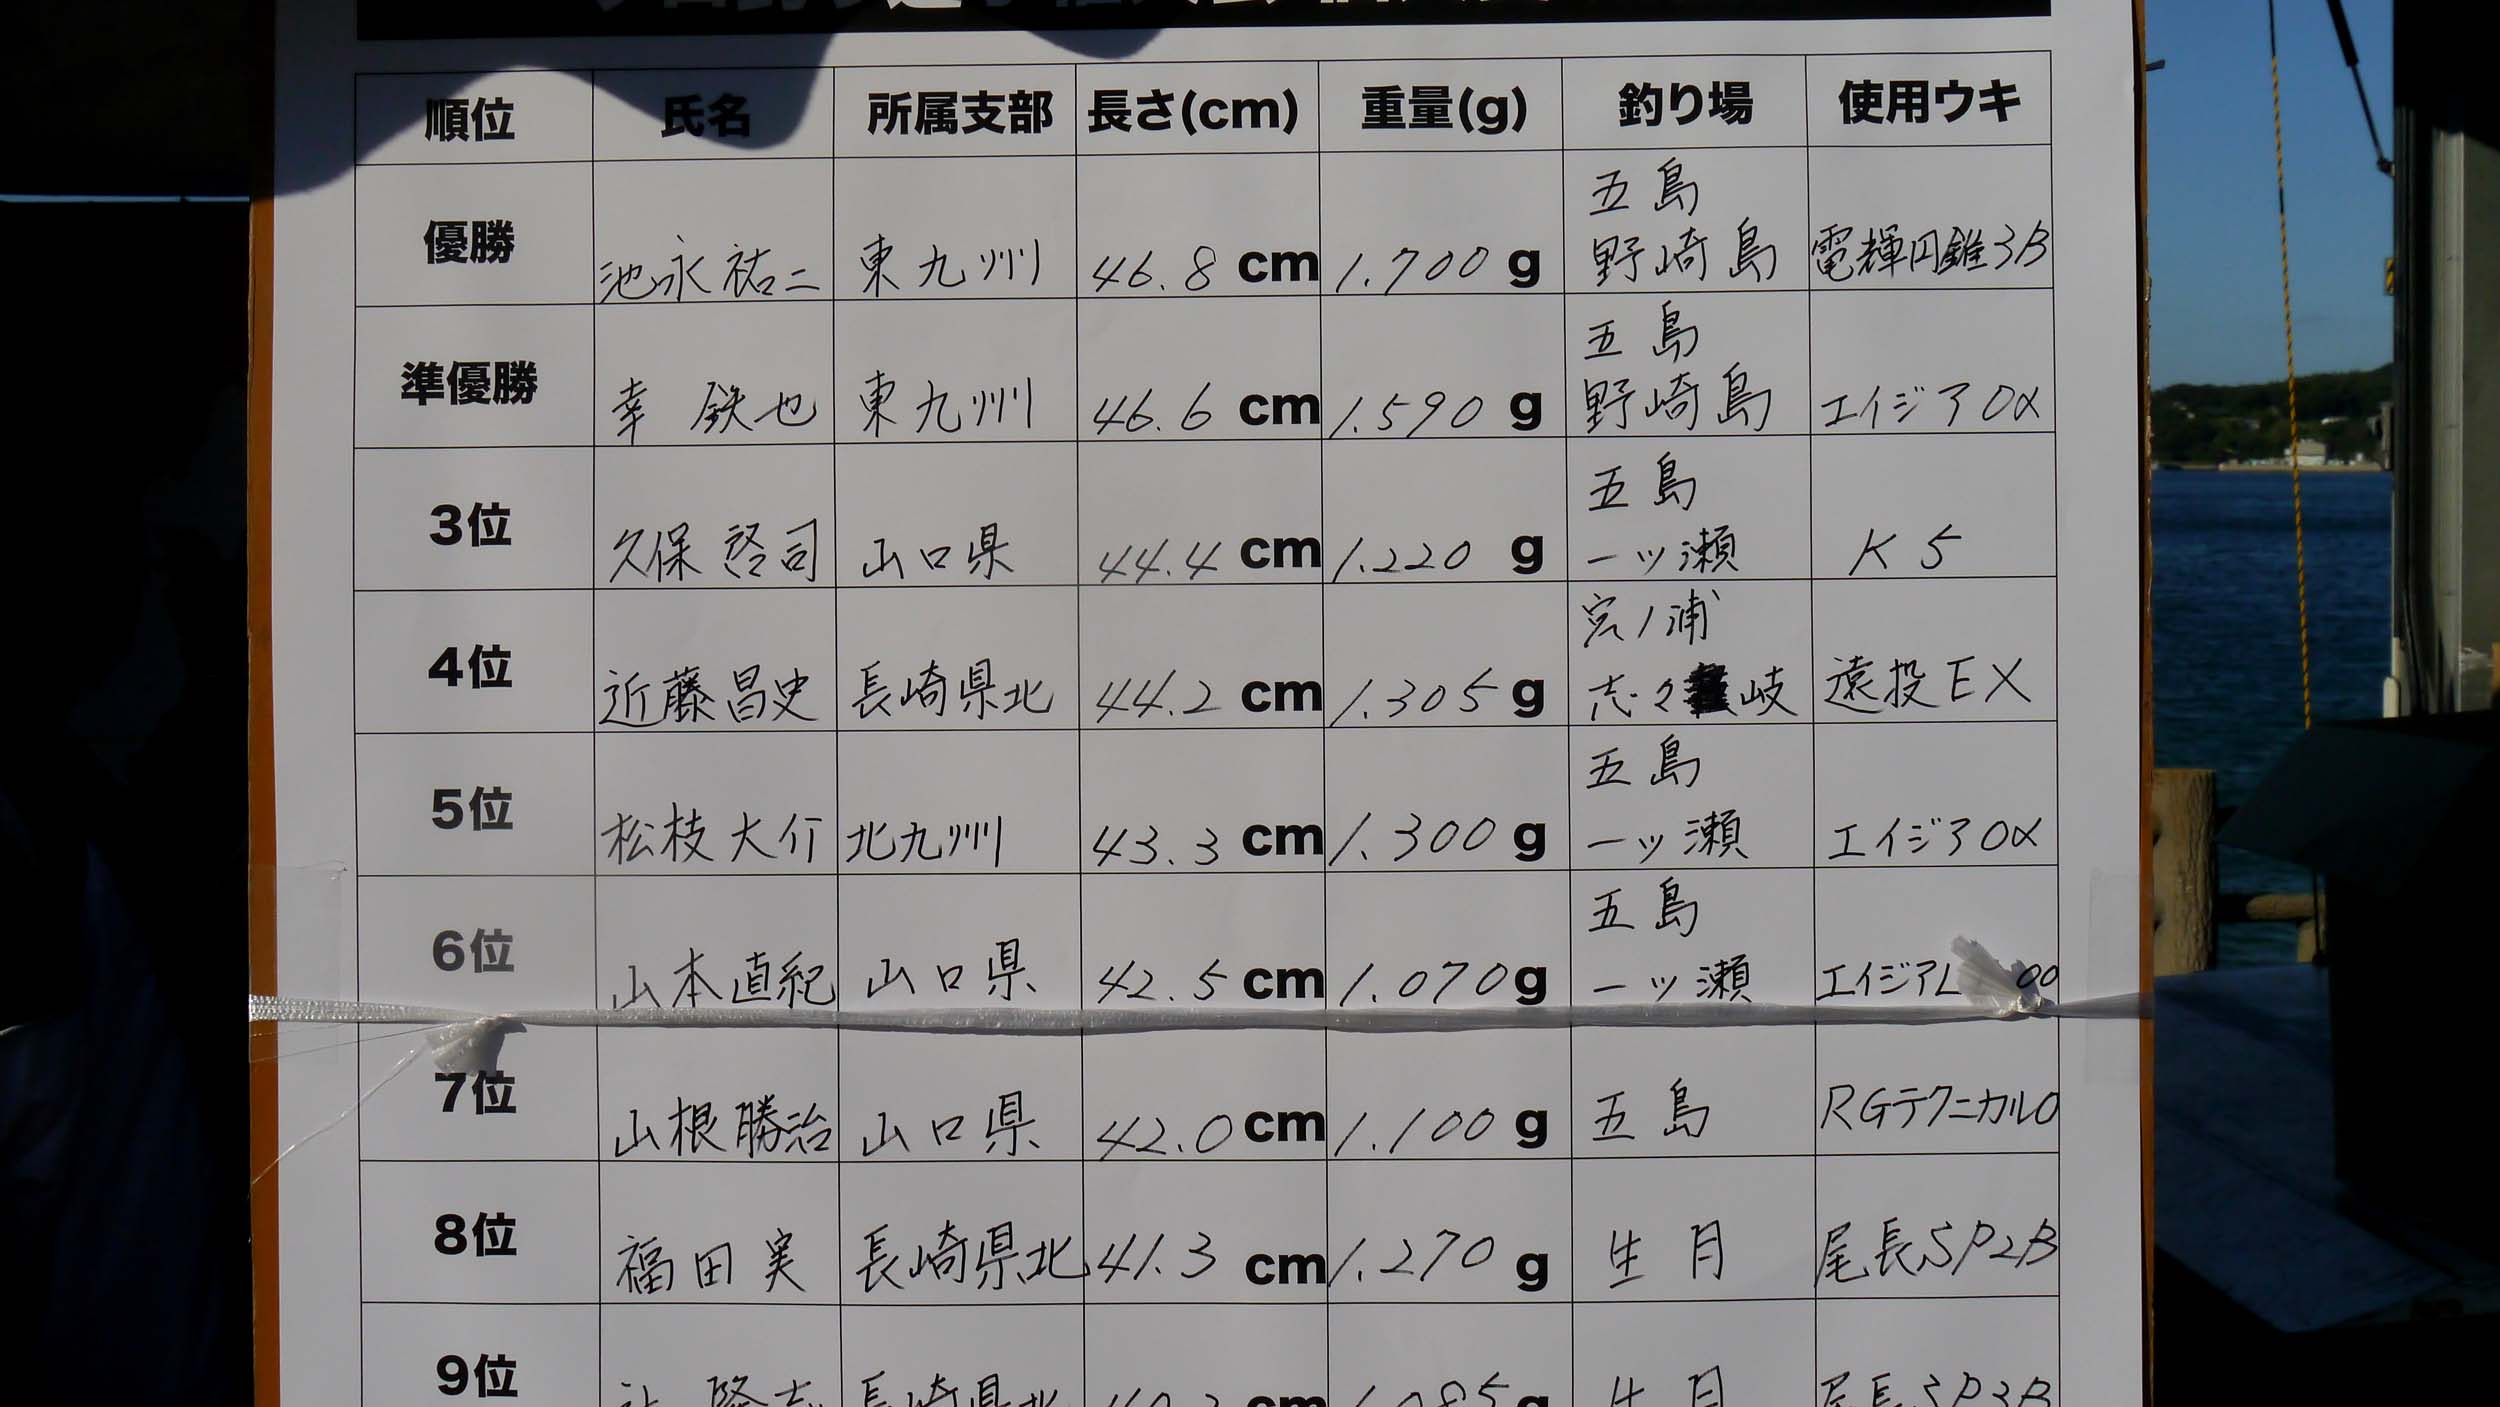 順位 氏名 所属支部 長さ(cm) 重量(g) 釣り場 使用ウキ
優勝 池永祐二 東九州 46.8 cm 1.700 g 五島 野崎島 電輝円錐3B
準優勝 幸 鉄也 東九州 46.6 cm 1.590 g 五島 野崎島 エイジア0α
3位 久保啓司 山口県 44.4 cm 1.220 g 五島 一ッ瀬 K5
4位 近藤昌史 長崎県北 44.2 cm 1.305 g 宮ノ浦 志々岐 遠投EX
5位 松枝大介 北九州 43.3 cm 1.300 g 五島 一ッ瀬 エイジア0α
6位 山本直紀 山口県 42.5 cm 1.070 g 五島 一ッ瀬 エイジアL 00
7位 山根勝治 山口県 42.0 cm 1.100 g 五島 RGテクニカル0
8位 福田実 長崎県北 41.3 cm 1.270 g 生月 尾長SP2B
9位 長崎県北 cm g 生月 尾長SP3B